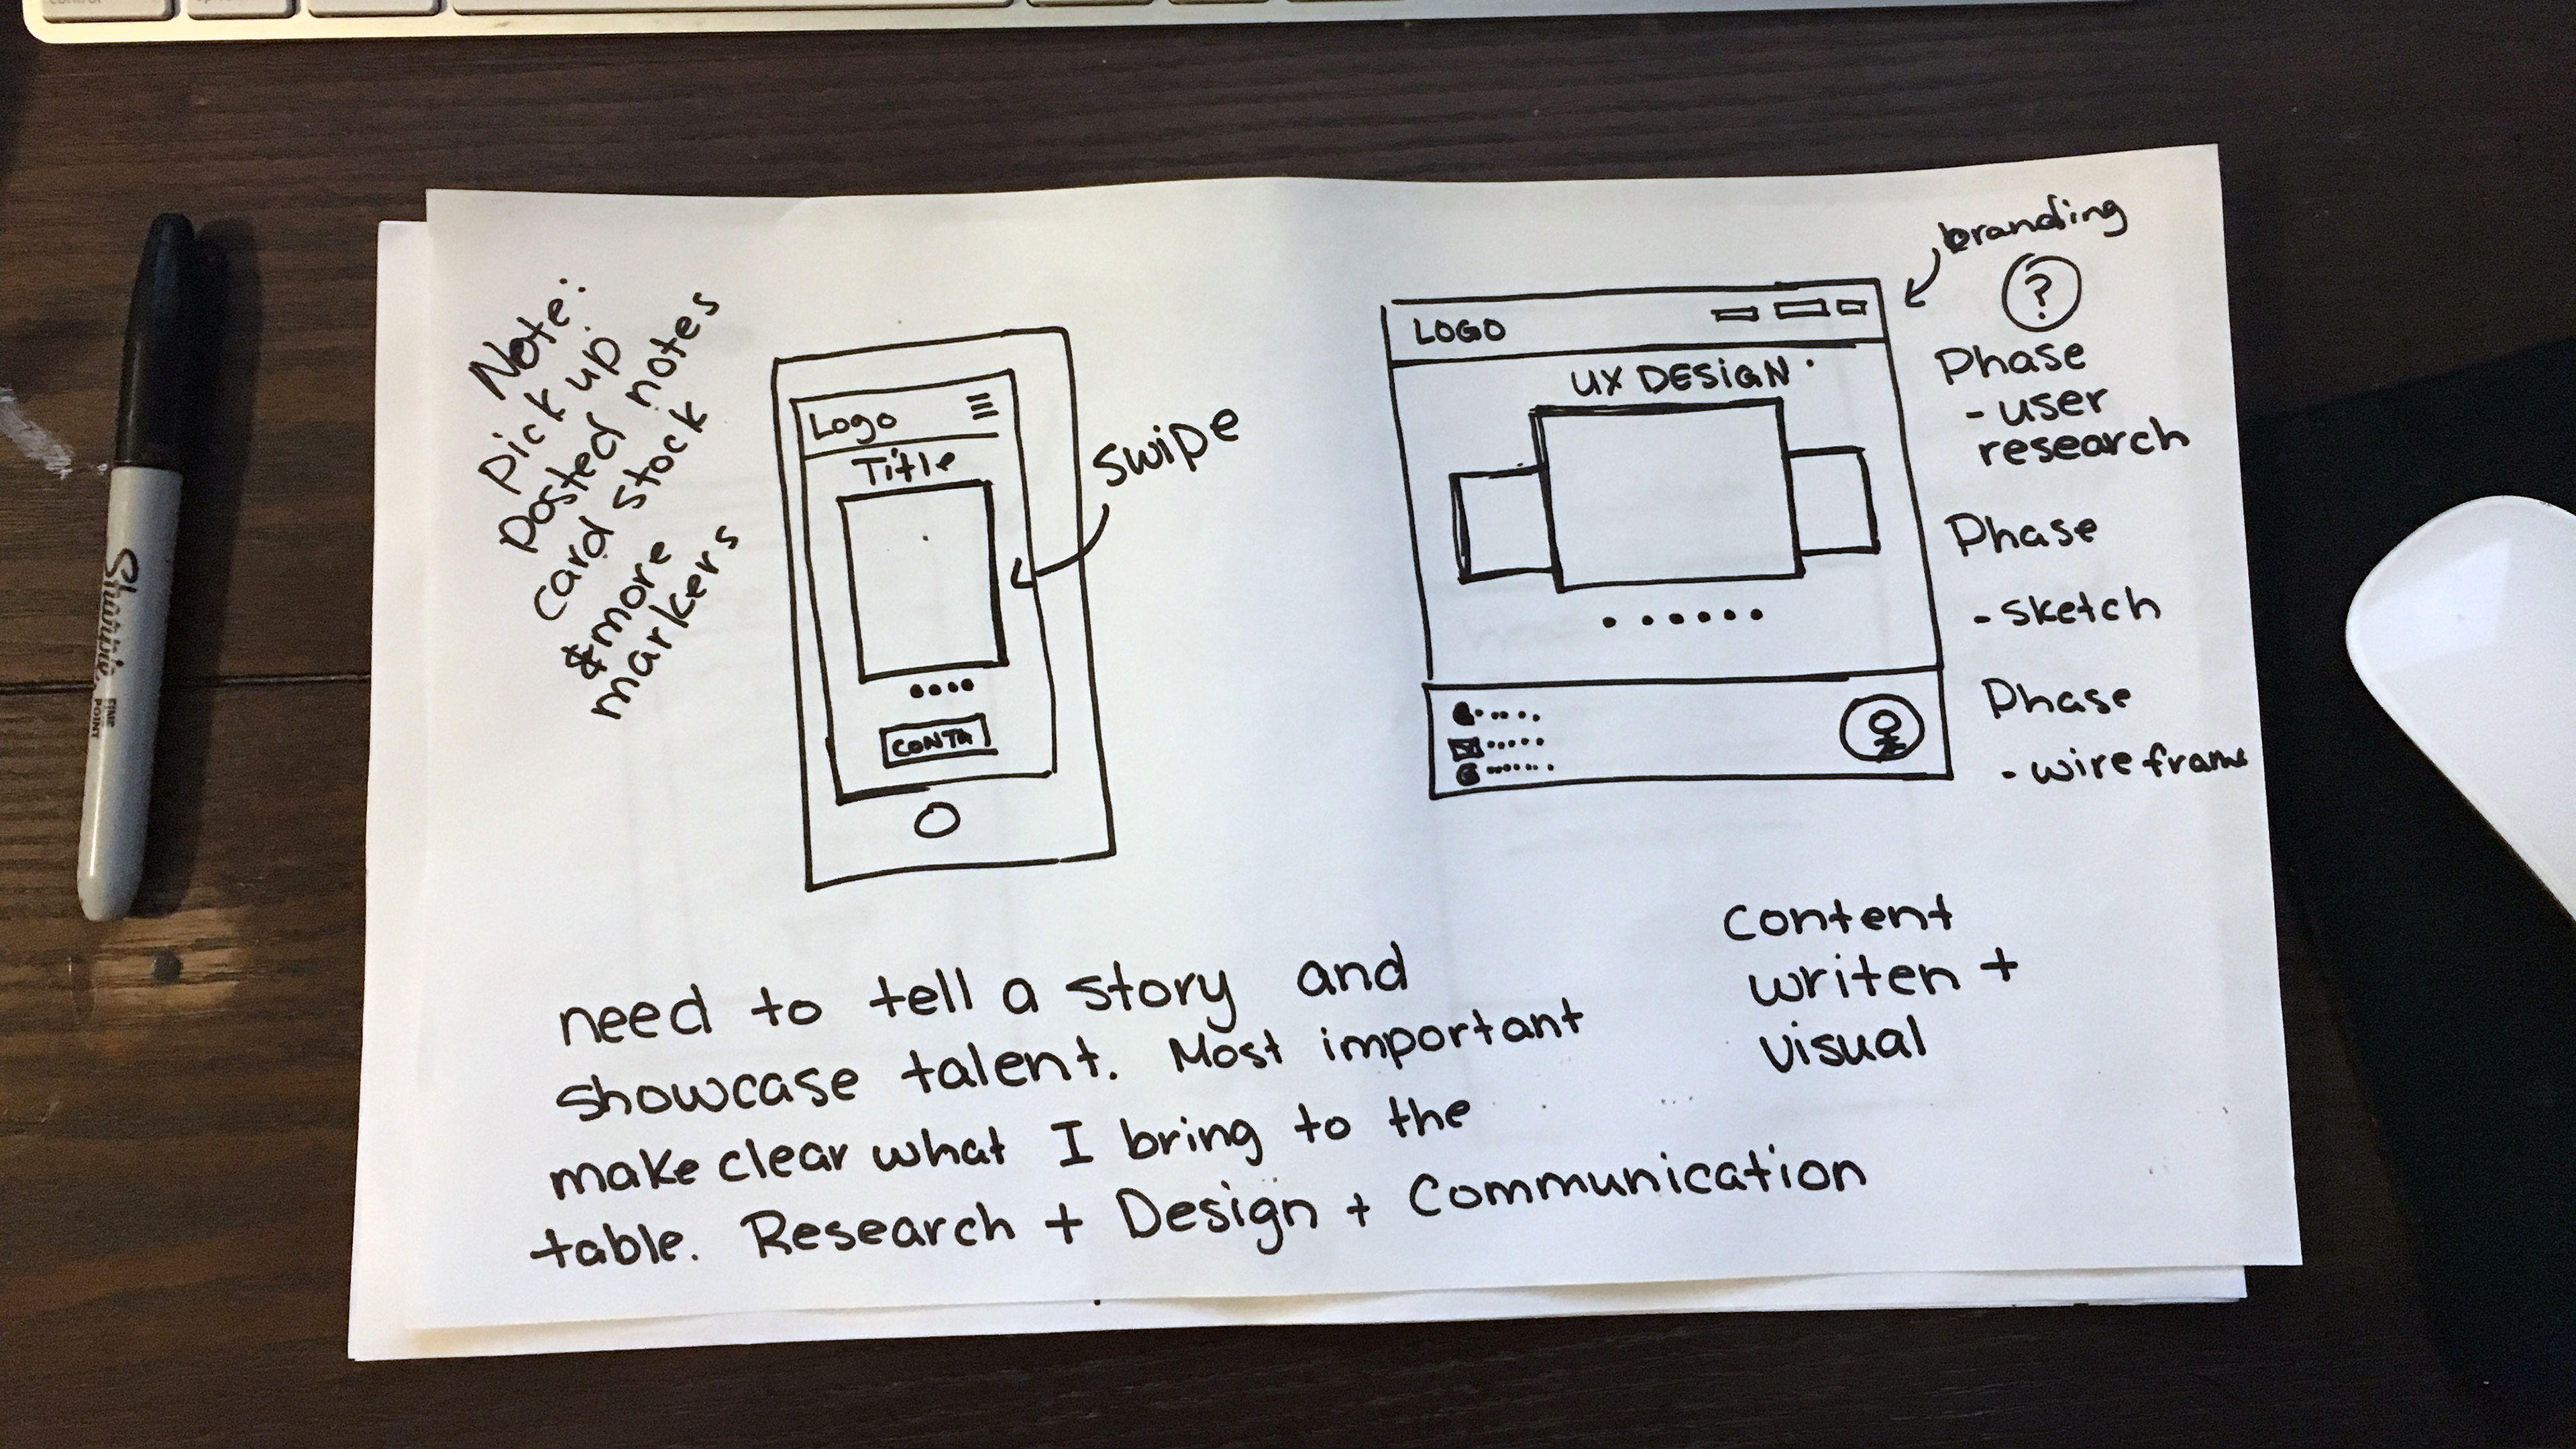 control
option
Sharpie
FINE
POINT
Note:
pick up
posted notes
card stock
&more
markers
Logo
Title
CONTA
swipe
branding
?
LOGO
UX DESIGN
Phase
- user
research
Phase
- sketch
Phase
- wireframe
need to tell a story and
showcase talent. Most important
make clear what I bring to the
table. Research + Design + Communication
Content
writen +
visual